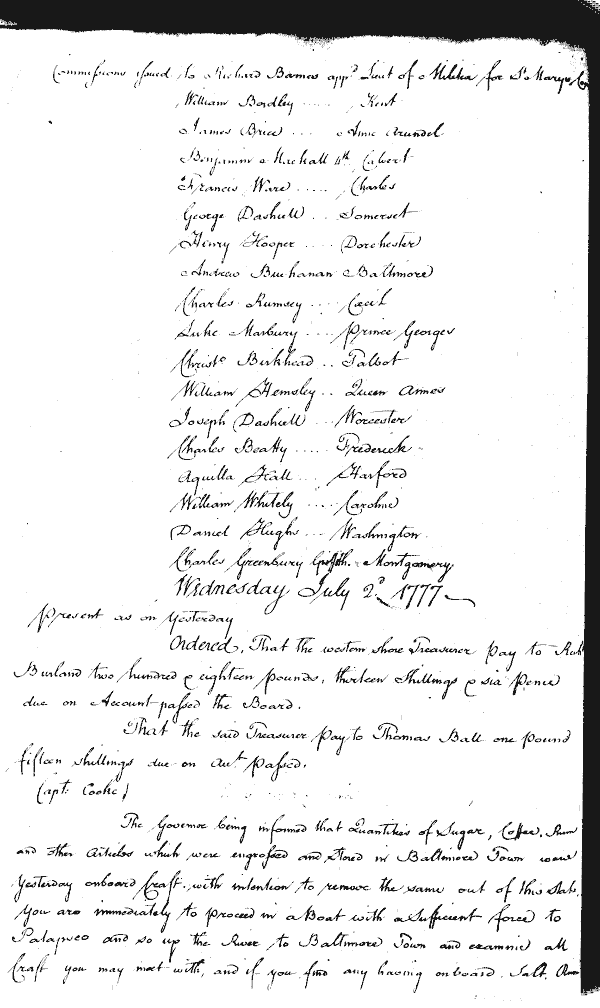 Commissions issued to Richard Barnes app.d Lieut of Militia for St Marys Co
William Bordley ..... Kent
James Brice ... Anne Arundel
Benjamin Mackall 4th Calvert
Francis Ware ..... Charles
George Dashiell ... Somerset
Henry Hooper ..... Dorchester
Andrew Buchanan Baltimore
Charles Rumsey .... Cecil
Luke Marbury .... Prince Georges
Christo Birkhead .. Talbot
William Hemsley .. Queen Annes
Joseph Dashiell ... Worcester
Charles Beatty .... Frederick
Aquilla Hall .... Harford
William Whitely .... Caroline
Daniel Hughs ... Washington
Charles Greenbury Griffith. Montgomery
Wednesday July 2.d 1777
Present as on Yesterday
Ordered, That the western shore Treasurer pay to
Burland two hundred & eighteen pounds, thirteen Shillings & six pence
due on Account passed the Board.
That the said Treasurer pay to Thomas Ball one pound
fifteen shillings due on Acct. passed.
Capt. Cooke)
The Governor being informed that Quantities of Sugar, Coffee, Rum
and other Articles which were engrossed and stored in Baltimore Town were
Yesterday onboard Craft, with intention to remove the same out of this State.
You are immediately to proceed in a Boat with a Sufficient force to
Patapsco and so up the River to Baltimore Town and examine all
Craft you may meet with, and if you find any having onboard, Salt, Rum